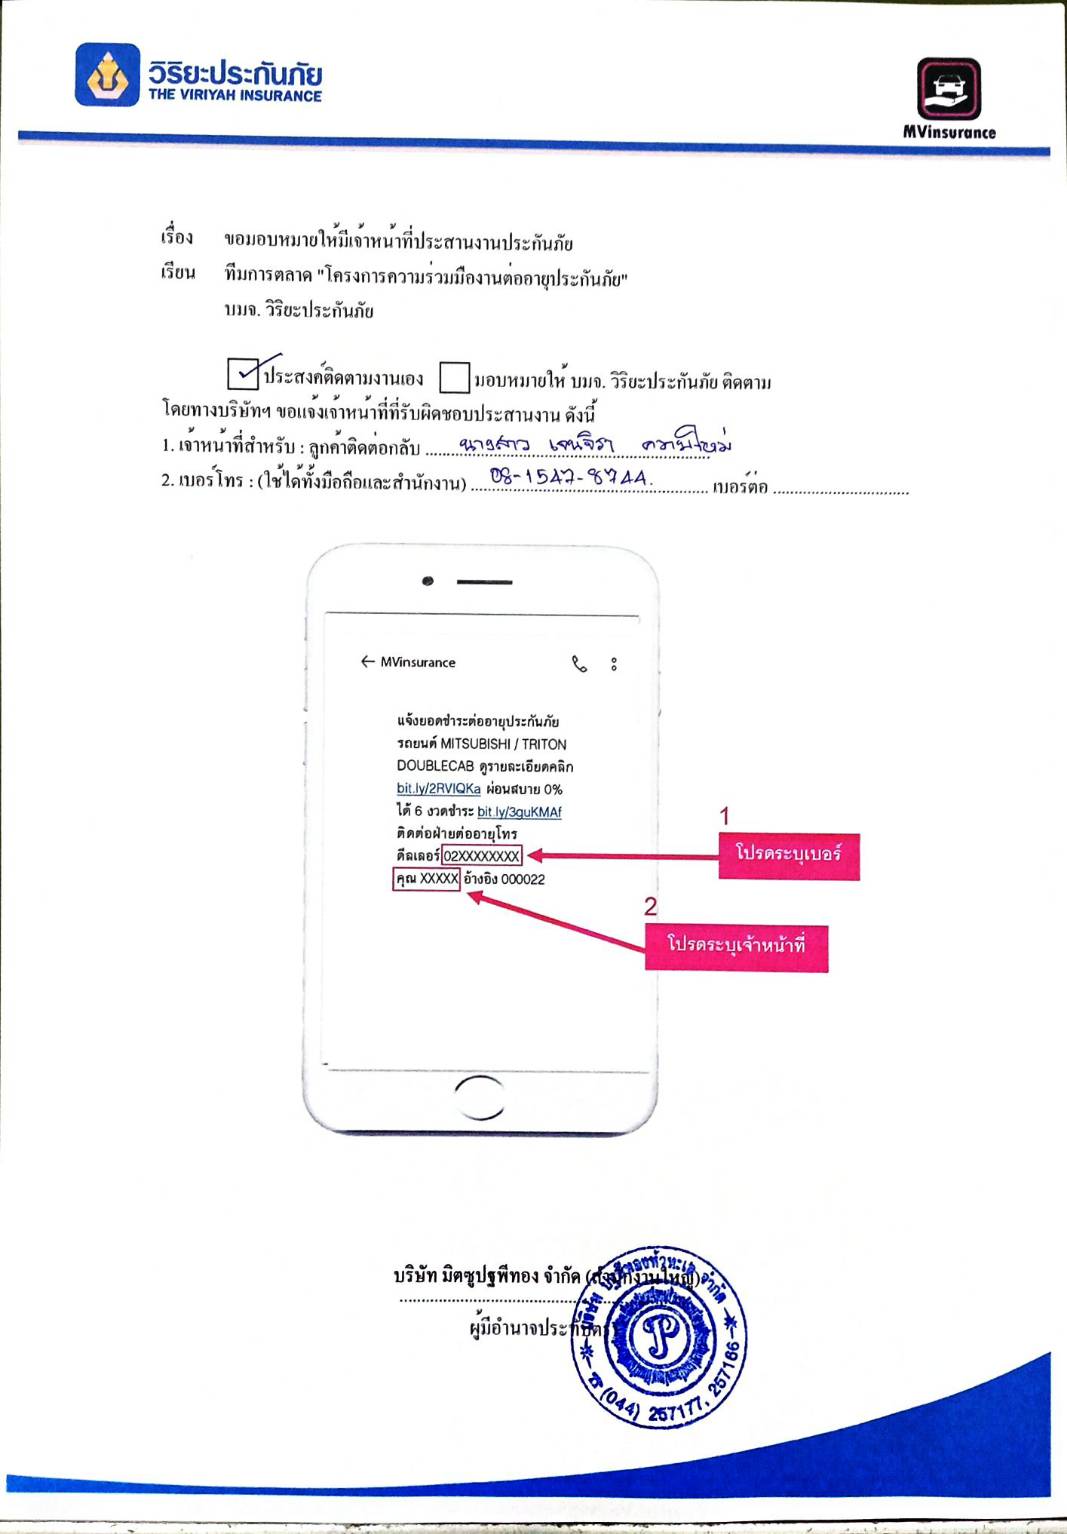 วิริยะประกันภัย
THE VIRIYAH INSURANCE
MVinsurance
เรื่อง ขอมอบหมายให้มีเจ้าหน้าที่ประสานงานประกันภัย
เรียน ทีมการตลาด "โครงการความร่วมมืองานต่ออายุประกันภัย"
บมจ. วิริยะประกันภัย
ประสงค์ติดตามงานเอง มอบหมายให้ บมจ. วิริยะประกันภัย ติดตาม
โดยทางบริษัทฯ ขอแจ้งเจ้าหน้าที่ที่รับผิดชอบประสานงาน ดังนี้
1. เจ้าหน้าที่สำหรับ : ลูกค้าติดต่อกลับ นางสาว เจนจิรา
2. เบอร์โทร : (ใช้ได้ทั้งมือถือและสำนักงาน) 08-1547-8744. เบอร์ต่อ
← MVinsurance
แจ้งยอดชำระต่ออายุประกันภัย
รถยนต์ MITSUBISHI / TRITON
DOUBLECAB ดูรายละเอียดคลิก
bit.ly/2RVIQKa ผ่อนสบาย 0%
ได้ 6 งวดชำระ bit.ly/3guKMAf
ติดต่อฝ่ายต่ออายุโทร
ดีลเลอร์ 02XXXXXXXX
คุณ XXXXX อ้างอิง 000022
1
โปรดระบุเบอร์
2
โปรดระบุเจ้าหน้าที่
บริษัท มิตซูปฐพีทอง จำกัด (สำนักงานใหญ่)
ผู้มีอำนาจประทับตรา
P
(044) 257177, 257166